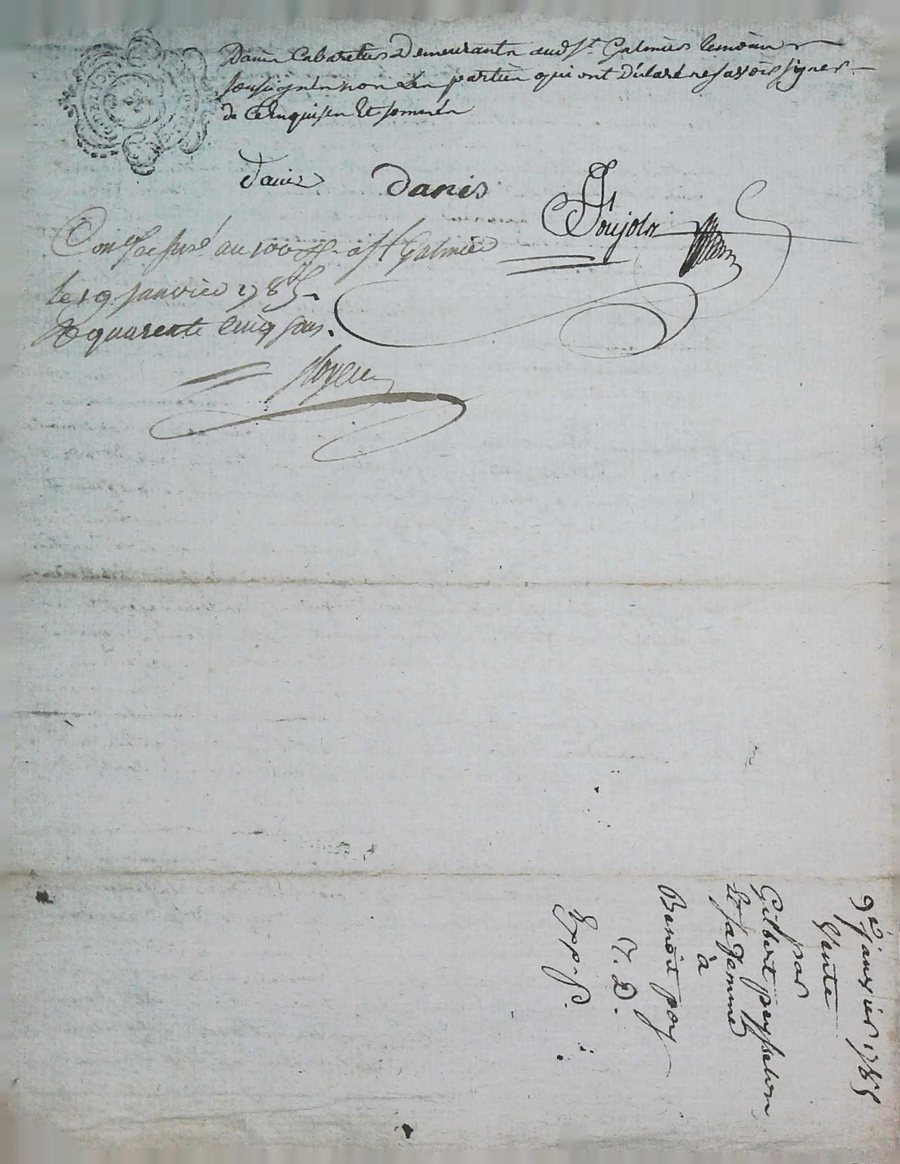 Danis Cabaretiers Demeurants aud. St. Galmier temoins
soussignés non les parties qui ont declaré ne savoir signer
de ce enquises et sommées
Danis Danis Poujols
Con. au 100 à St Galmier
le 19 janvier 1785.
quarente cinq sous.
9e janvier 1785
Vente
par
Gilbert peysselon
et sa femme
à
Benoit poy
7. D.
Exp.